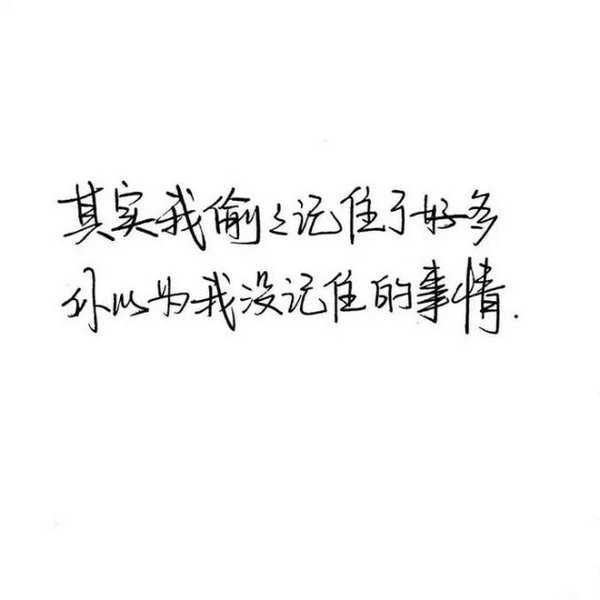 其实我偷々记住了好多
你以为我没记住的事情.